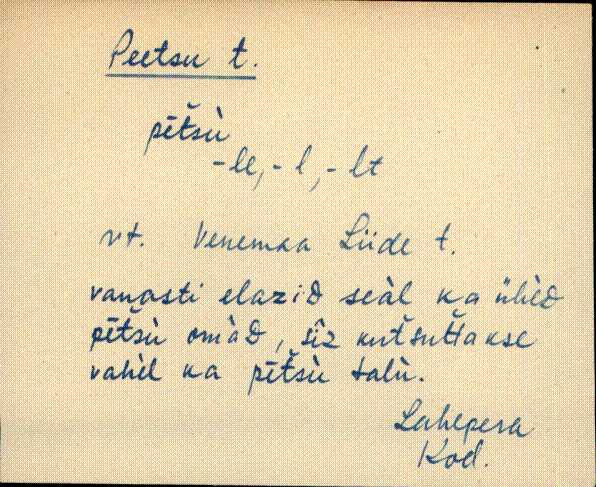 Peetsu t.
pētsù
-le, -l, -lt
vt. Venemaa Liide t.
vanasti elaziD seàl ka ühèD
pētsù omàD, sīz kutsuttakse
vahèl ka pētsù talù.
Lahepera
Kod.